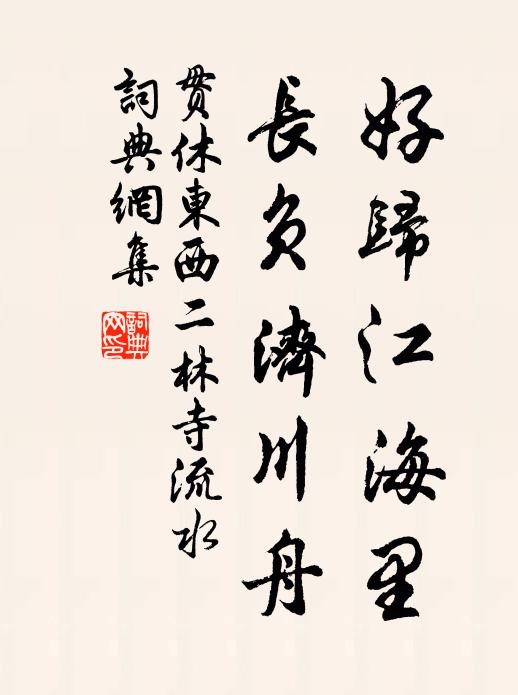 好歸江海里
長負濟川舟
貫休東西二林寺流水
詞典網集
詞典網印